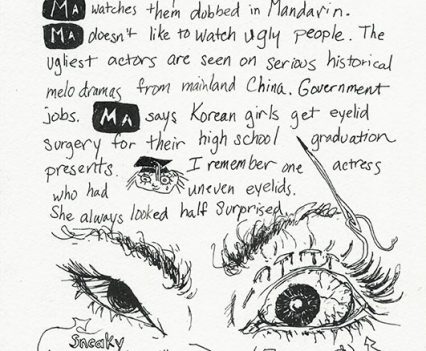 MA watches them dubbed in Mandarin.
MA doesn't like to watch ugly people. The
ugliest actors are seen on serious historical
melodramas from mainland China. Government
jobs. MA says Korean girls get eyelid
surgery for their high school graduation
presents. I remember one actress
who had uneven eyelids.
She always looked half surprised
Sneaky